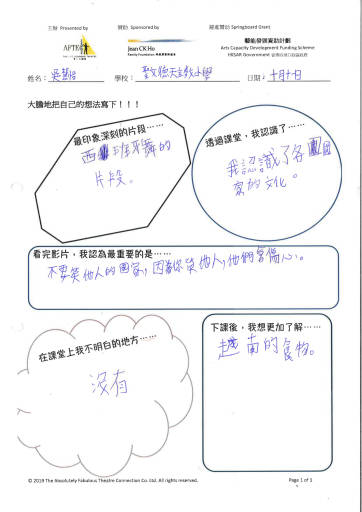 主辦 Presented by
贊助 Sponsored by
躍進資助計劃 Springboard Grant
藝能發展資助計劃
Arts Capacity Development Funding Scheme
HKSAR Government
APTEC
Jean CK Ho
Family Foundation
姓名：
學校：聖德天主教小學
日期：十月十日
大膽地把自己的想法寫下！！！
最印象深刻的片段……
西班牙舞的
片段。
透過課堂，我認識了……
我認識了各國
家的文化。
看完影片，我認為最重要的是……
不要笑他人的國家，因為你笑他人，他們會傷心。
在課堂上我不明白的地方……
沒有
下課後，我想更加了解……
越南的食物。
© 2019 The Absolutely Fabulous Theatre Connection Co. Ltd. All rights reserved.
Page 1 of 1